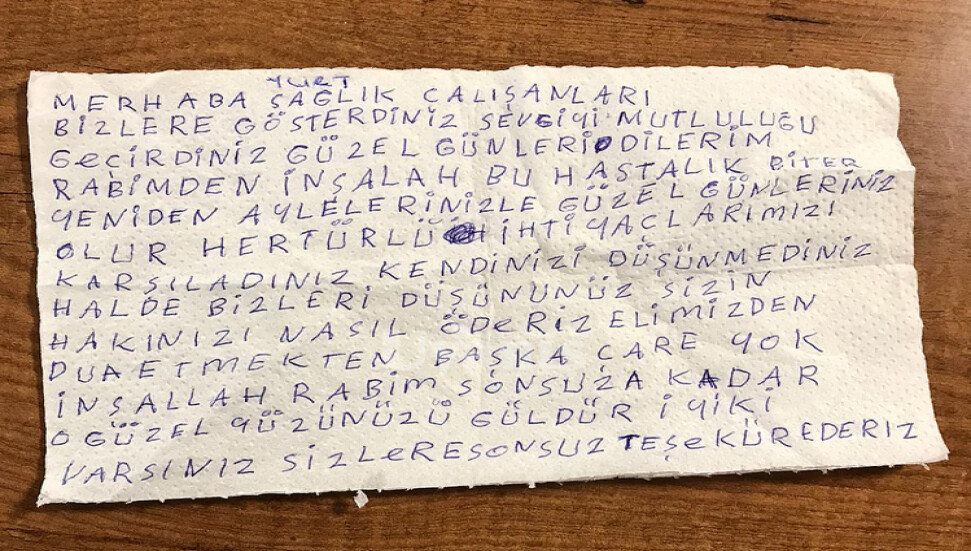 YURT
MERHABA SAĞLIK ÇALIŞANLARI
BİZLERE GÖSTERDİNİZ SEVGİYİ MUTLULUĞU
GEÇİRDİNİZ GÜZEL GÜNLERİ DİLERİM
RABİMDEN İNŞALAH BU HASTALIK BİTER
YENİDEN AYLELERİNİZLE GÜZEL GÜNLERİNİZ
OLUR HERTÜRLÜ İHTİYAÇLARIMIZI
KARŞILADINIZ KENDİNİZİ DÜŞÜNMEDİNİZ
HALDE BİZLERİ DÜŞÜNÜNÜZ SİZİN
HAKINIZI NASIL ÖDERİZ ELİMİZDEN
DUA ETMEKTEN BAŞKA ÇARE YOK
İNŞALLAH RABİM SONSUZA KADAR
O GÜZEL YÜZÜNÜZÜ GÜLDÜR İYİKİ
VARSINIZ SİZLERE SONSUZ TEŞEKÜREDERİZ